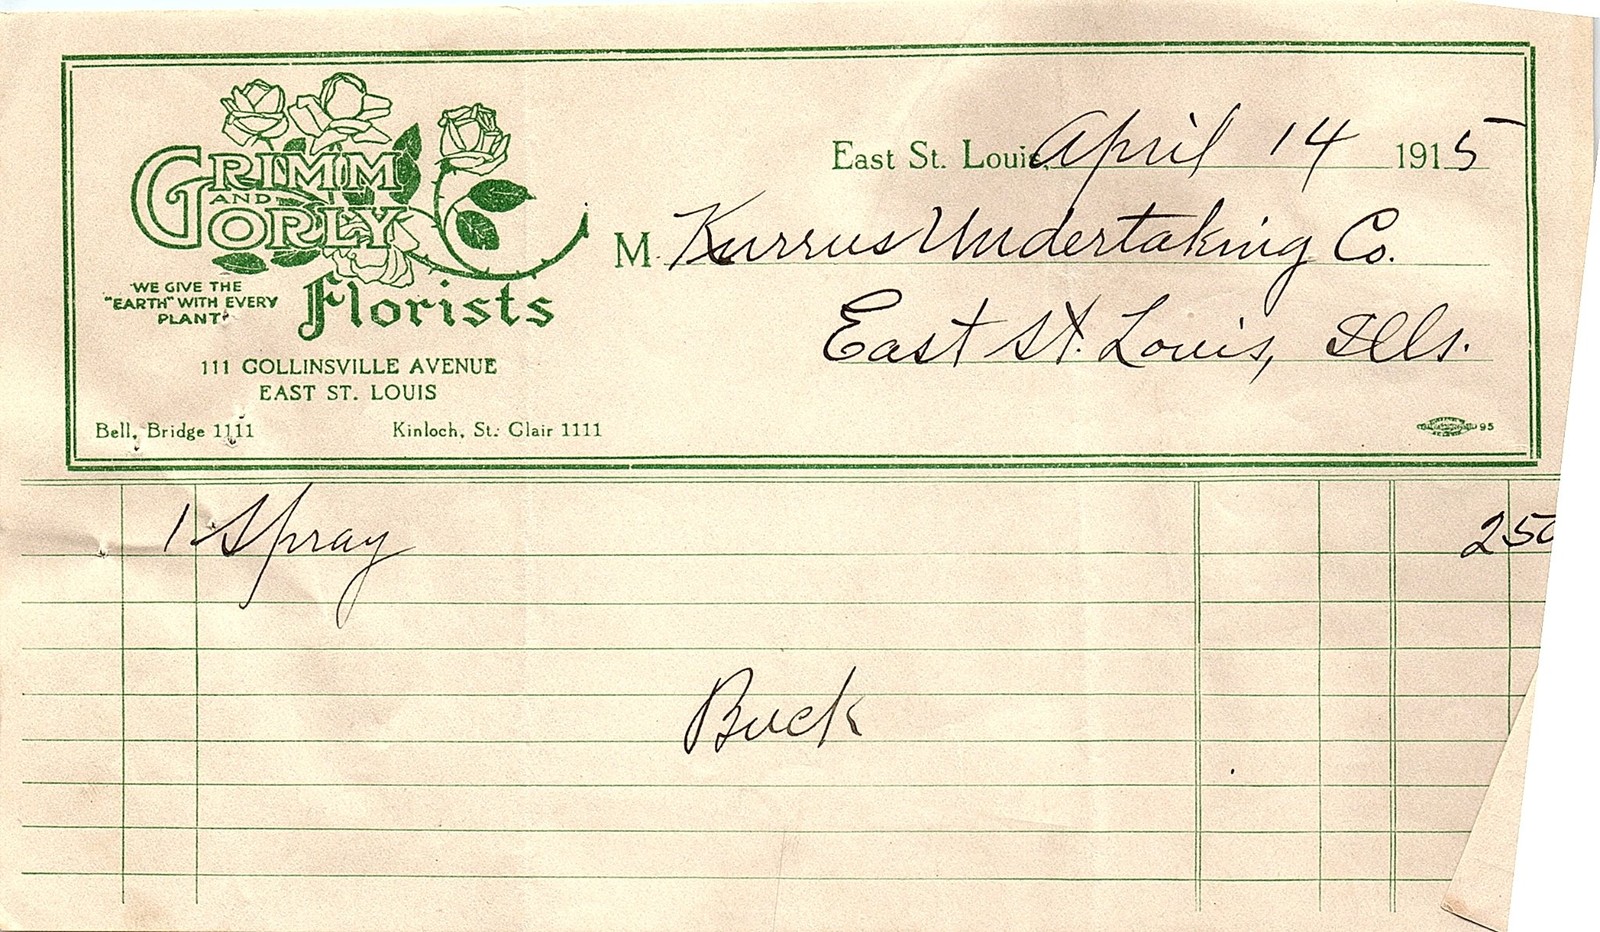 GRIMM
AND
GORLY
Florists
WE GIVE THE
"EARTH" WITH EVERY
PLANT
111 COLLINSVILLE AVENUE
EAST ST. LOUIS
Bell, Bridge 1111 Kinloch, St. Clair 1111
East St. Louis, April 14 1915
M. Kurrus Undertaking Co.
East St. Louis, Ills.
95
1 Spray 250
Buck